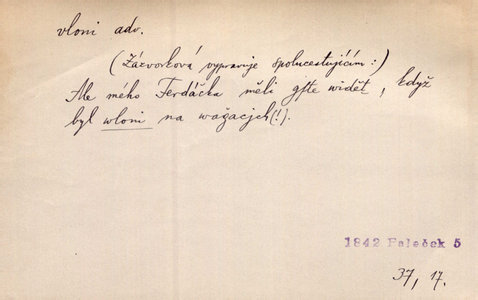 vloni adv.
(Zázvorková vypravuje spolucestujícím:)
Ale mého Ferdáčka měli gste widět, když
byl wloni na wažacjch(!).
1842 Paleček 5
37, 17.